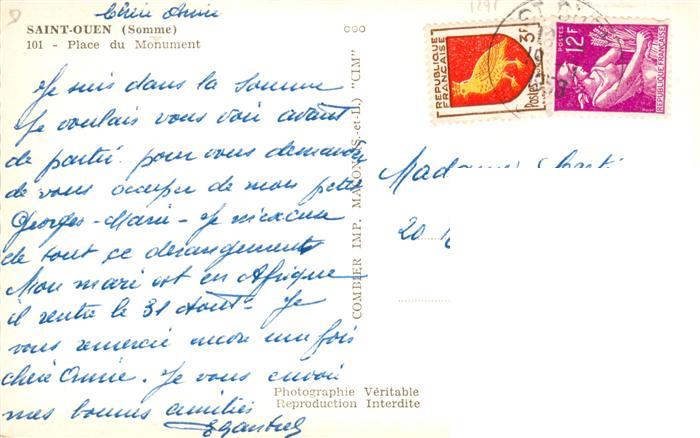 Chère Annie
SAINT-OUEN (Somme)
101 - Place du Monument
Je suis dans la Somme
Je voulais vous voir avant
de partir. pour vous demander
de vous occuper de mon petit
Georges-Marie - Je m'excuse
de tout ce dérangement
Mon mari est en Afrique
il rentre le 31 Août - Je
vous remercie encore une fois
chère Annie. Je vous envoie
mes bonnes amitiés
COMBIER IMP. MACON (S.-et-L.) "CIM"
Photographie Véritable
Reproduction Interdite
REPUBLIQUE FRANÇAISE
3F
Postes
POSTES
12F
REPUBLIQUE FRANÇAISE
Madame
20